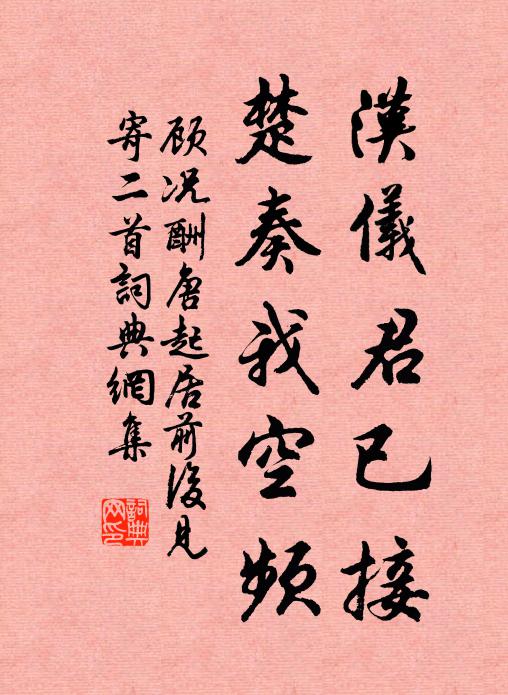 漢儀君已接
楚奏我空頻
顾况酬唐起居前後見
寄二首詞典網集
詞典网印